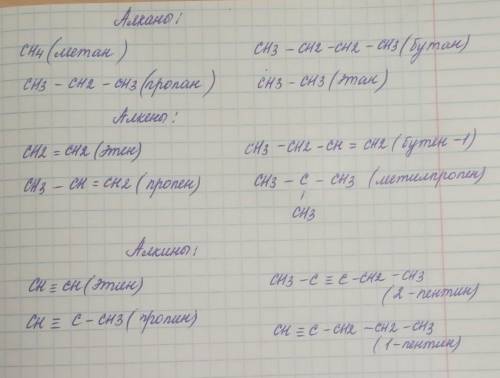 Алканы:
CH4 (метан) CH3 – CH2 – CH2 – CH3 (бутан)
CH3 – CH2 – CH3 (пропан) CH3 – CH3 (этан)
Алкены:
CH2 = CH2 (этен) CH3 – CH2 – CH = CH2 (бутен –1)
CH3 – CH = CH2 (пропен) CH3 – C – CH3 (метилпропен)
CH3
Алкины:
CH ≡ CH (этин) CH3 – C ≡ C – CH2 – CH3
(2-пентин)
CH ≡ C – CH3 (пропин) CH ≡ C – CH2 – CH2 – CH3
(1-пентин)